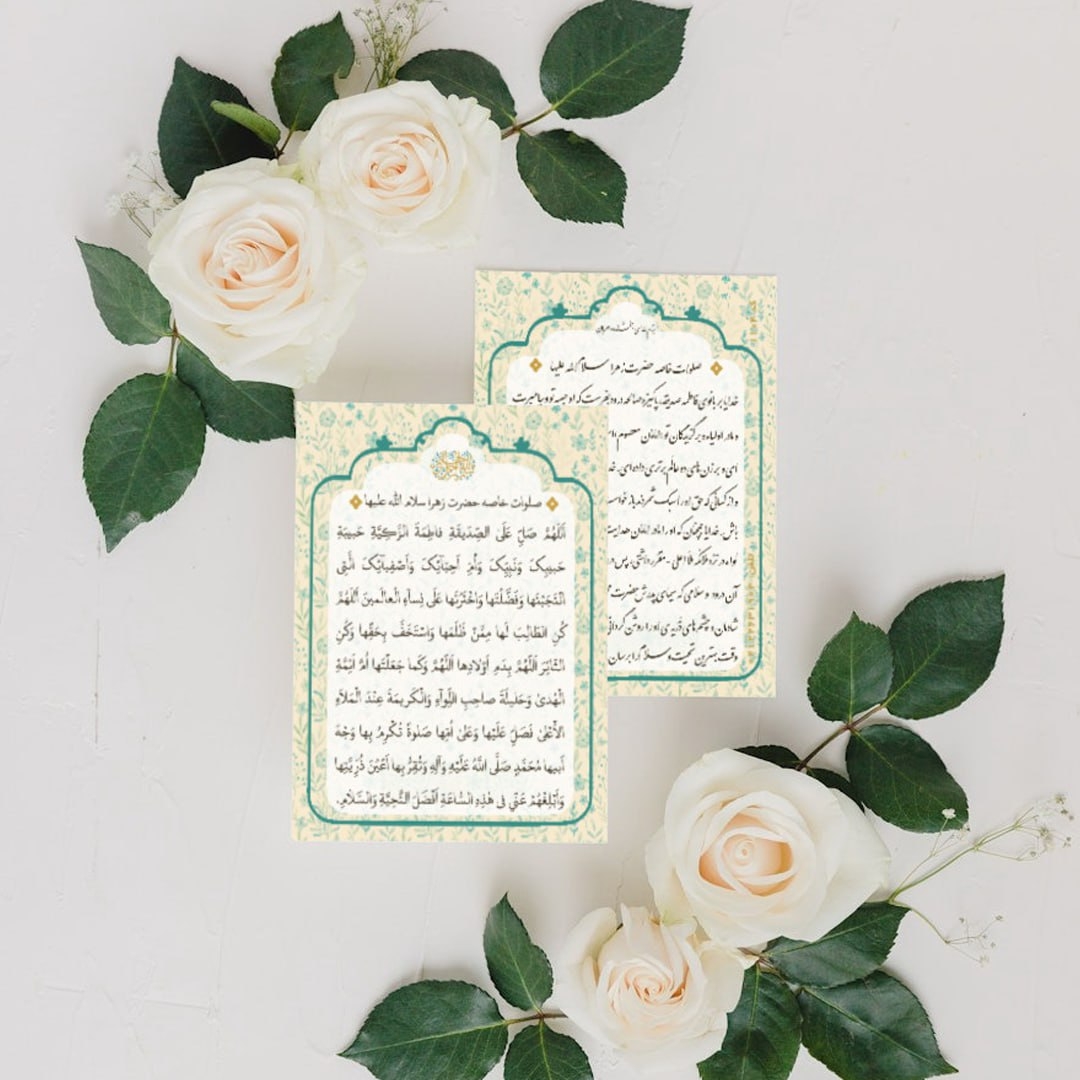 صلوات خاصه حضرت زهرا سلام الله علیها
اَللّهُمَّ صَلِّ عَلَی الصِّدیقَةِ فاطِمَةَ الزَّکِیَّةِ حَبیبَةِ
حَبیبِکَ وَنَبِیِّکَ وَاُمِّ اَحِبّائِکَ وَاَصْفِیائِکَ الَّتِی
انْتَجَبْتَها وَفَضَّلْتَها وَاخْتَرْتَها عَلی نِساءِ الْعالَمینَ اَللّهُمَّ
کُنِ الطّالِبَ لَها مِمَّنْ ظَلَمَها وَاسْتَخَفَّ بِحَقِّها وَکُنِ
الثّائِرَ اَللّهُمَّ بِدَمِ اَوْلادِها اَللّهُمَّ وَکَما جَعَلْتَها اُمَّ اَئِمَّةِ
الْهُدی وَحَلیلَةَ صاحِبِ اللِّواءِ وَالْکَریمَةَ عِنْدَ الْمَلَاءِ
الْاَعْلی فَصَلِّ عَلَیْها وَعَلی اُمِّها صَلوةً تُکْرِمُ بِها وَجْهَ
اَبیها مُحَمَّدٍ صَلَّی اللهُ عَلَیْهِ وَآلِهِ وَتُقِرُّ بِها اَعْیُنَ ذُرِّیَّتِها
وَاَبْلِغْهُمْ عَنّی فی هذِهِ السّاعَةِ اَفْضَلَ التَّحِیَّةِ وَالسَّلامِ.
صلوات خاصه حضرت زهرا سلام الله علیها
خدایا بر بانوی فاطمه صدیقه، پاکیزه درود بفرست که او حبیبه تو و پیامبرت
و مادر اولیاء و برگزیدگان تو معصوم
ای و بر زن های دو عالم برتری داده ای.
و از کسانی که حق او را سبک شمردند باز خواست
باش. خدایا چنان که او را مادر امامان هدایت
لواء در نزد ملائکه ملأ اعلی - مقرر داشتی، پس
آن درود و سلامی که سیمای پدرش حضرت
شادمان و چشم های ذریه ی او را روشن گردانی
وقت بهترین تحیت و سلام مرا برسان